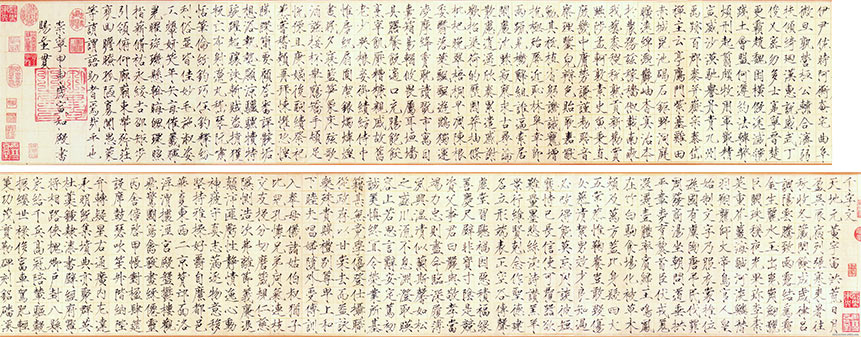 千字文
天地元黃宇宙洪荒日月
盈昃辰宿列張寒來暑往
秋收冬藏閏餘成歲律呂
調陽雲騰致雨露結為霜
金生麗水玉出崑岡劍號
巨闕珠稱夜光果珍李柰
菜重芥薑海鹹河淡鱗潛
羽翔龍師火帝鳥官人皇
始制文字乃服衣裳推位
遜國有虞陶唐弔民伐罪
周發商湯坐朝問道垂拱
平章愛育黎首臣伏戎羌
遐邇壹體率賓歸王鳴鳳
在白駒食場化被草木
賴及萬方蓋此身髮四大
五常恭惟鞠養豈敢毀傷
女慕貞潔男效才良知過
必改得能莫忘罔談彼短
靡恃己長信使可覆器欲
難量墨悲絲染詩讚羔羊
景行維賢剋念作聖德建
名立形端表正空谷傳聲
虛堂習聽禍因惡積福緣
善慶尺璧非寶寸陰是競
資父事君曰嚴與敬孝當
竭力忠則盡命臨深履薄
夙興溫凊似蘭斯馨如松
之盛川流不息淵澄取映
容止若思言辭安定篤初
誠美慎終宜令榮業所基
籍甚無竟學優登仕攝職
從政存以甘棠去而益詠
樂殊貴賤禮別尊卑上和
下睦夫唱婦隨外受傅訓
入奉母儀諸姑伯叔猶子
比兒孔懷兄弟同氣連枝
交友投分切磨箴規仁慈
隱惻造次弗離節義廉退
顛沛匪虧性靜情逸心動
神疲守真志滿逐物意移
堅持雅操好爵自縻都邑
華夏東西二京背邙面洛
浮渭據涇宮殿盤鬱樓觀
飛驚圖寫禽獸畫綵仙靈
丙舍傍啟甲帳對楹肆筵
設席鼓瑟吹笙升階納陛
弁轉疑星右通廣內左達
承明既集墳典亦聚群英
杜稾鍾隸漆書壁經府羅
將相路俠槐卿戶封八縣
家給千兵高冠陪輦驅轂
振纓世祿侈富車駕肥輕
策功茂實勒碑刻銘磻溪
伊尹佐時阿衡奄宅曲阜
微旦孰營桓公輔合濟弱
扶傾綺迴漢惠說感武丁
俊乂密勿多士寔寧晉楚
更霸趙魏困橫假途滅虢
踐土會盟何遵約法韓弊
煩刑起翦頗牧用軍最精
宣威沙漠馳譽丹青九州
禹跡百郡秦并嶽宗泰岱
禪主云亭鴈門紫塞雞田
赤城昆池碣石鉅野洞庭
曠遠綿邈巖岫杳冥治本
於農務茲稼穡俶載南畝
我藝黍稷稅熟貢新勸賞
黜陟孟軻敦素史魚秉直
庶幾中庸勞謙謹敕聆音
察理鑒貌辨色貽厥嘉猷
勉其祗植省躬譏誡寵增
抗極殆辱近恥林皋幸即
兩疏見機解組誰逼索居
閒處沉默寂寥求古尋論
散慮逍遙欣奏累遣慼謝
歡招渠荷的歷園莽抽條
枇杷晚翠梧桐早凋陳根
委翳落葉飄颻遊鵾獨運
凌摩絳霄耽讀翫市寓目
囊箱易輶攸畏屬耳垣牆
具膳飡飯適口充腸飽飫
烹宰飢厭糟糠親戚故舊
老少異糧妾御績紡侍巾
帷房紈扇圓潔銀燭煒煌
晝眠夕寐籃筍象床弦歌
酒讌接杯舉觴矯手頓足
悅豫且康嫡後嗣續祭祀
烝嘗稽顙再拜悚懼恐惶
牋牒簡要顧答審詳骸垢
想浴執熱願涼驢騾犢特
駭躍超驤誅斬賊盜捕獲
叛亡布射遼丸嵇琴阮嘯
恬筆倫紙鈞巧任釣釋紛
利俗並皆佳妙毛施淑姿
工顰妍笑年矢每催曦暉
朗曜璇璣懸斡晦魄環照
指薪脩祜永綏吉劭矩步
引領俯仰廊廟束帶矜莊
徘徊瞻眺孤陋寡聞愚蒙
等誚謂語助者焉哉乎也
崇寧甲申歲宣和殿書
賜童貫